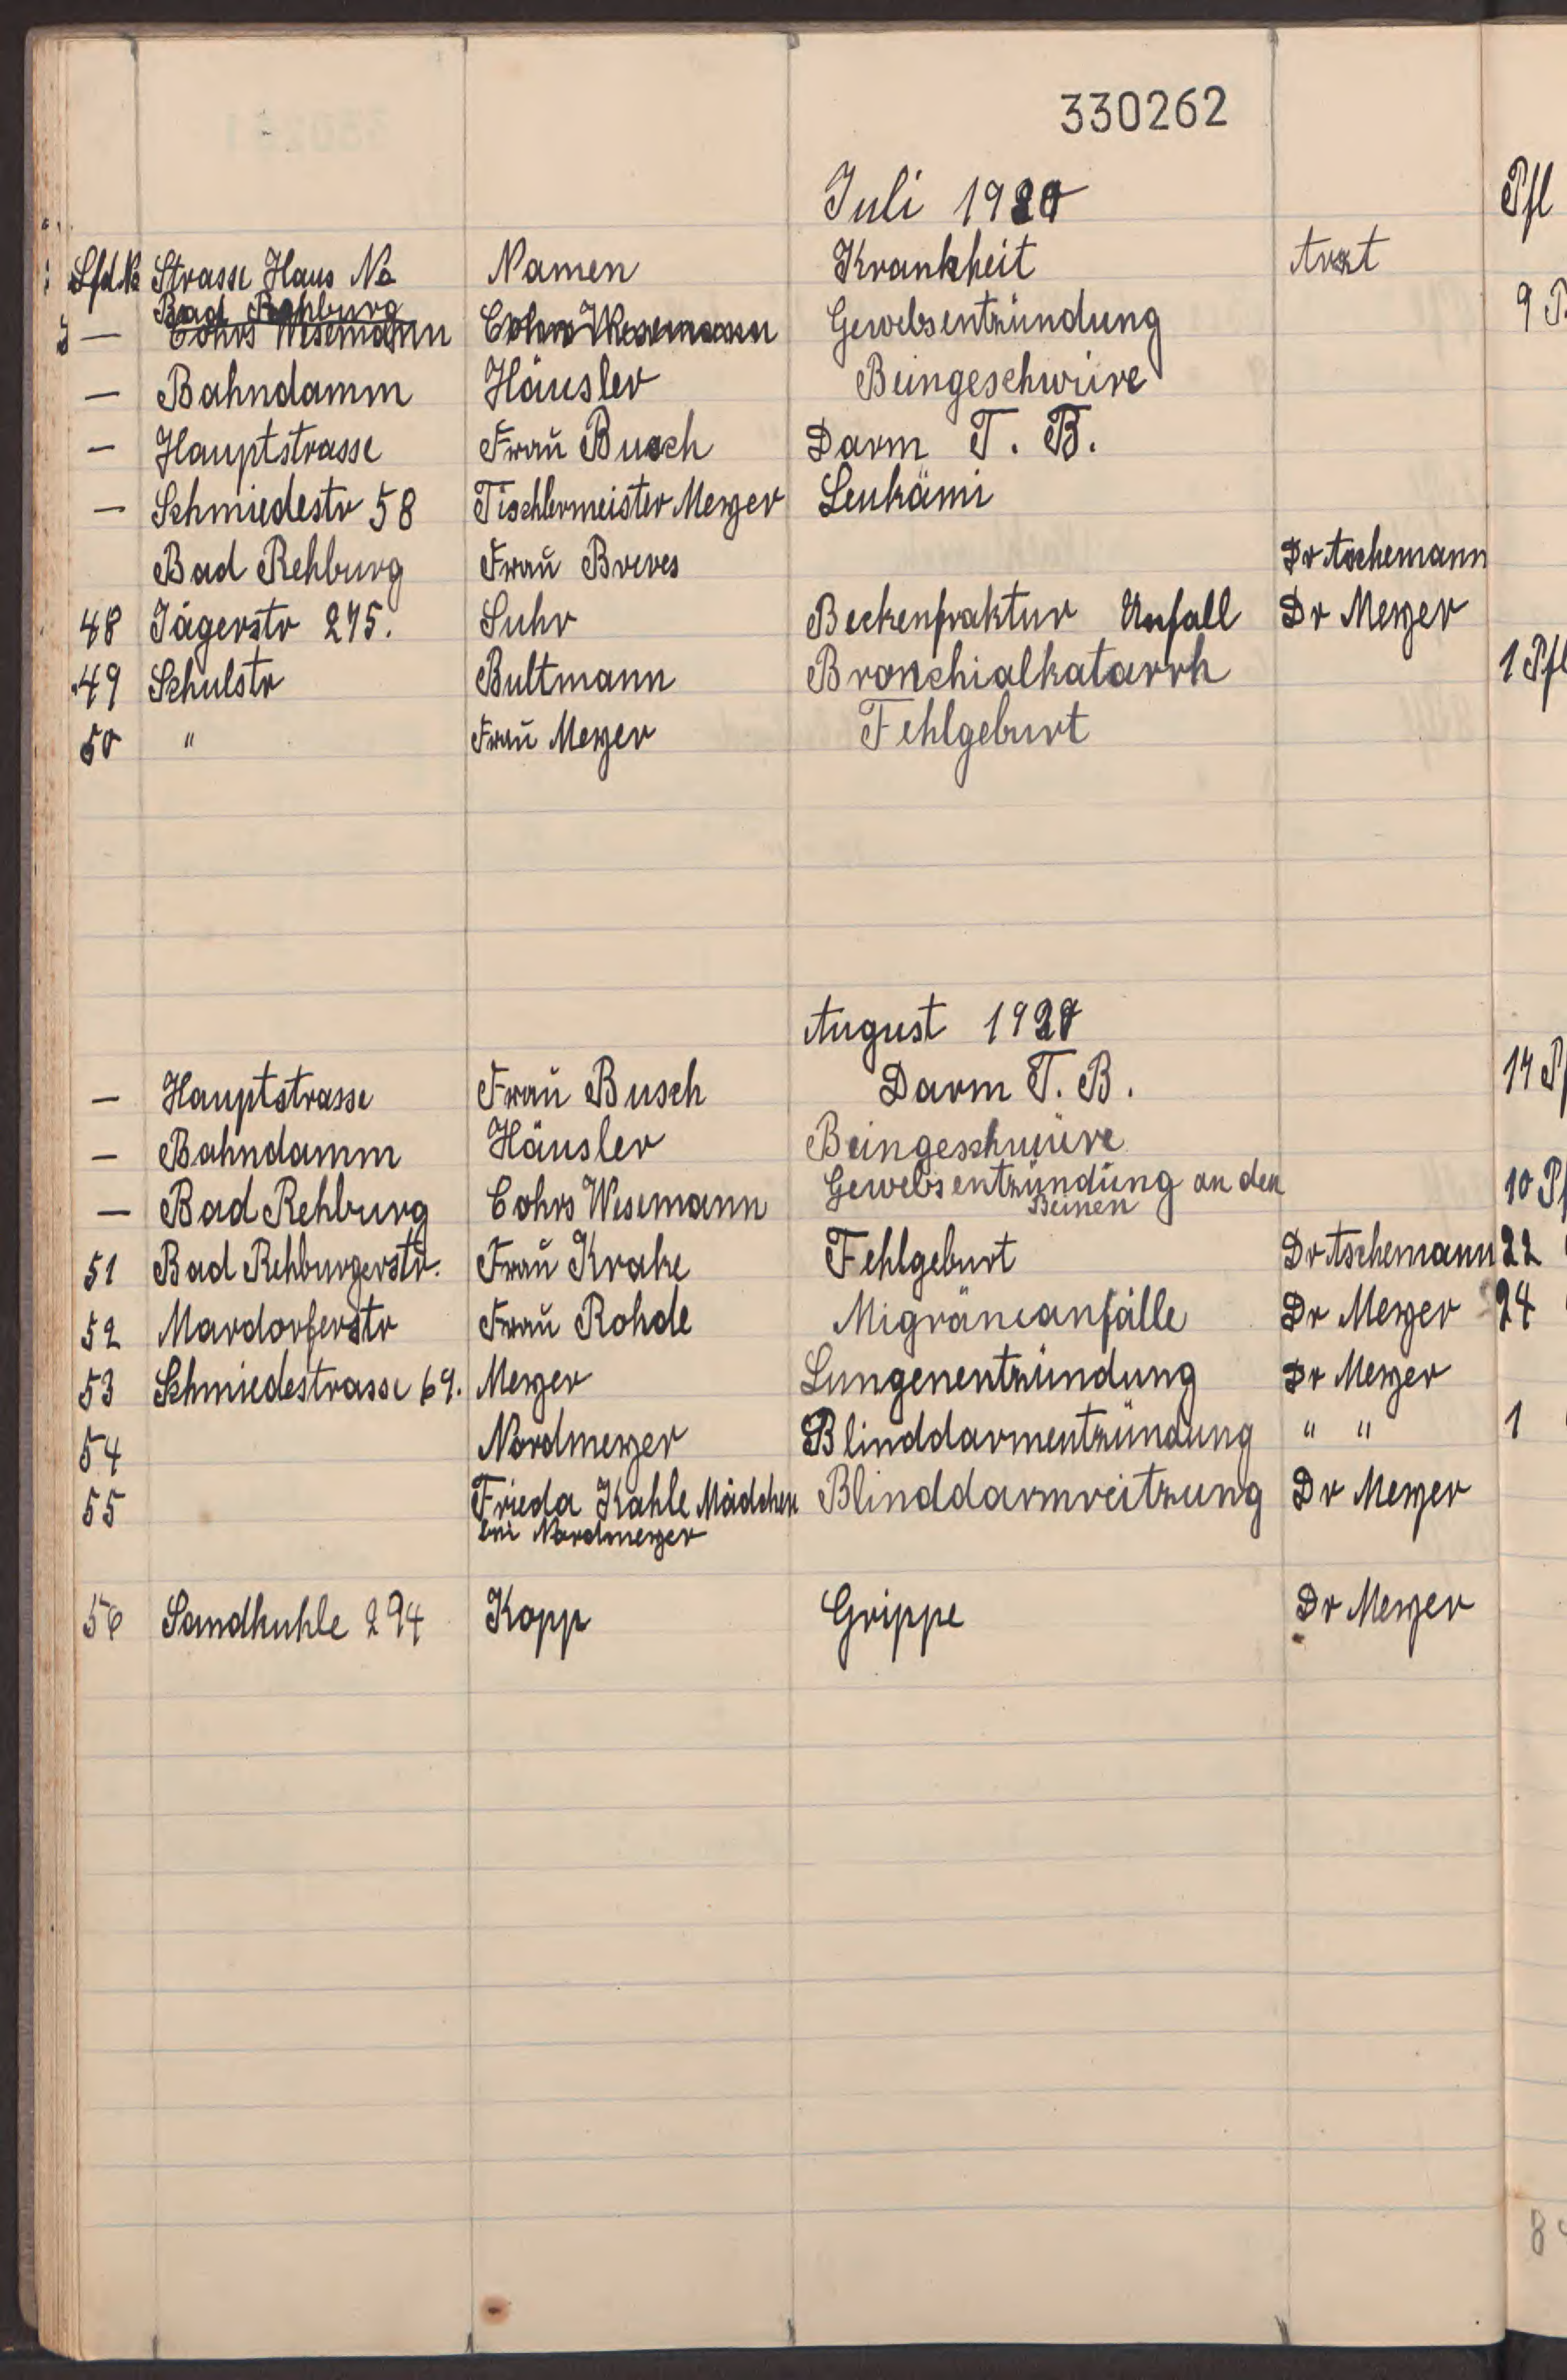 330262
Juli 1920
Lfd No Strasse Haus No Namen Krankheit Arzt
Bad Rehburg
— Cohrs Wesemann Cohrs Wesemann Gewebsentzündung
— Bahndamm Häusler Beingeschwüre
— Hauptstrasse Frau Busch Darm T. B.
— Schmiedestr 58 Tischlermeister Meyer Leukämi
Bad Rehburg Frau Breves Dr Aschemann
48 Jägerstr 275. Suhr Beckenfraktur Unfall Dr Meyer
49 Schulstr Bultmann Bronchialkatarrh
50 " Frau Meyer Fehlgeburt
August 1920
— Hauptstrasse Frau Busch Darm T. B.
— Bahndamm Häusler Beingeschwüre
— Bad Rehburg Cohrs Wesemann Gewebsentzündung an den
Beinen
51 Bad Rehburgerstr. Frau Krake Fehlgeburt Dr Aschemann
52 Mardorferstr Frau Rohde Migräneanfälle Dr Meyer
53 Schmiedestrasse 69. Meyer Lungenentzündung Dr Meyer
54 Nordmeyer Blinddarmentzündung " "
55 Frieda Kahle Mädchen Blinddarmreitzung Dr Meyer
bei Nordmeyer
56 Sandkuhle 294 Kopp Grippe Dr Meyer
Pfl
9
1 Pfl
14
10
22
24
1